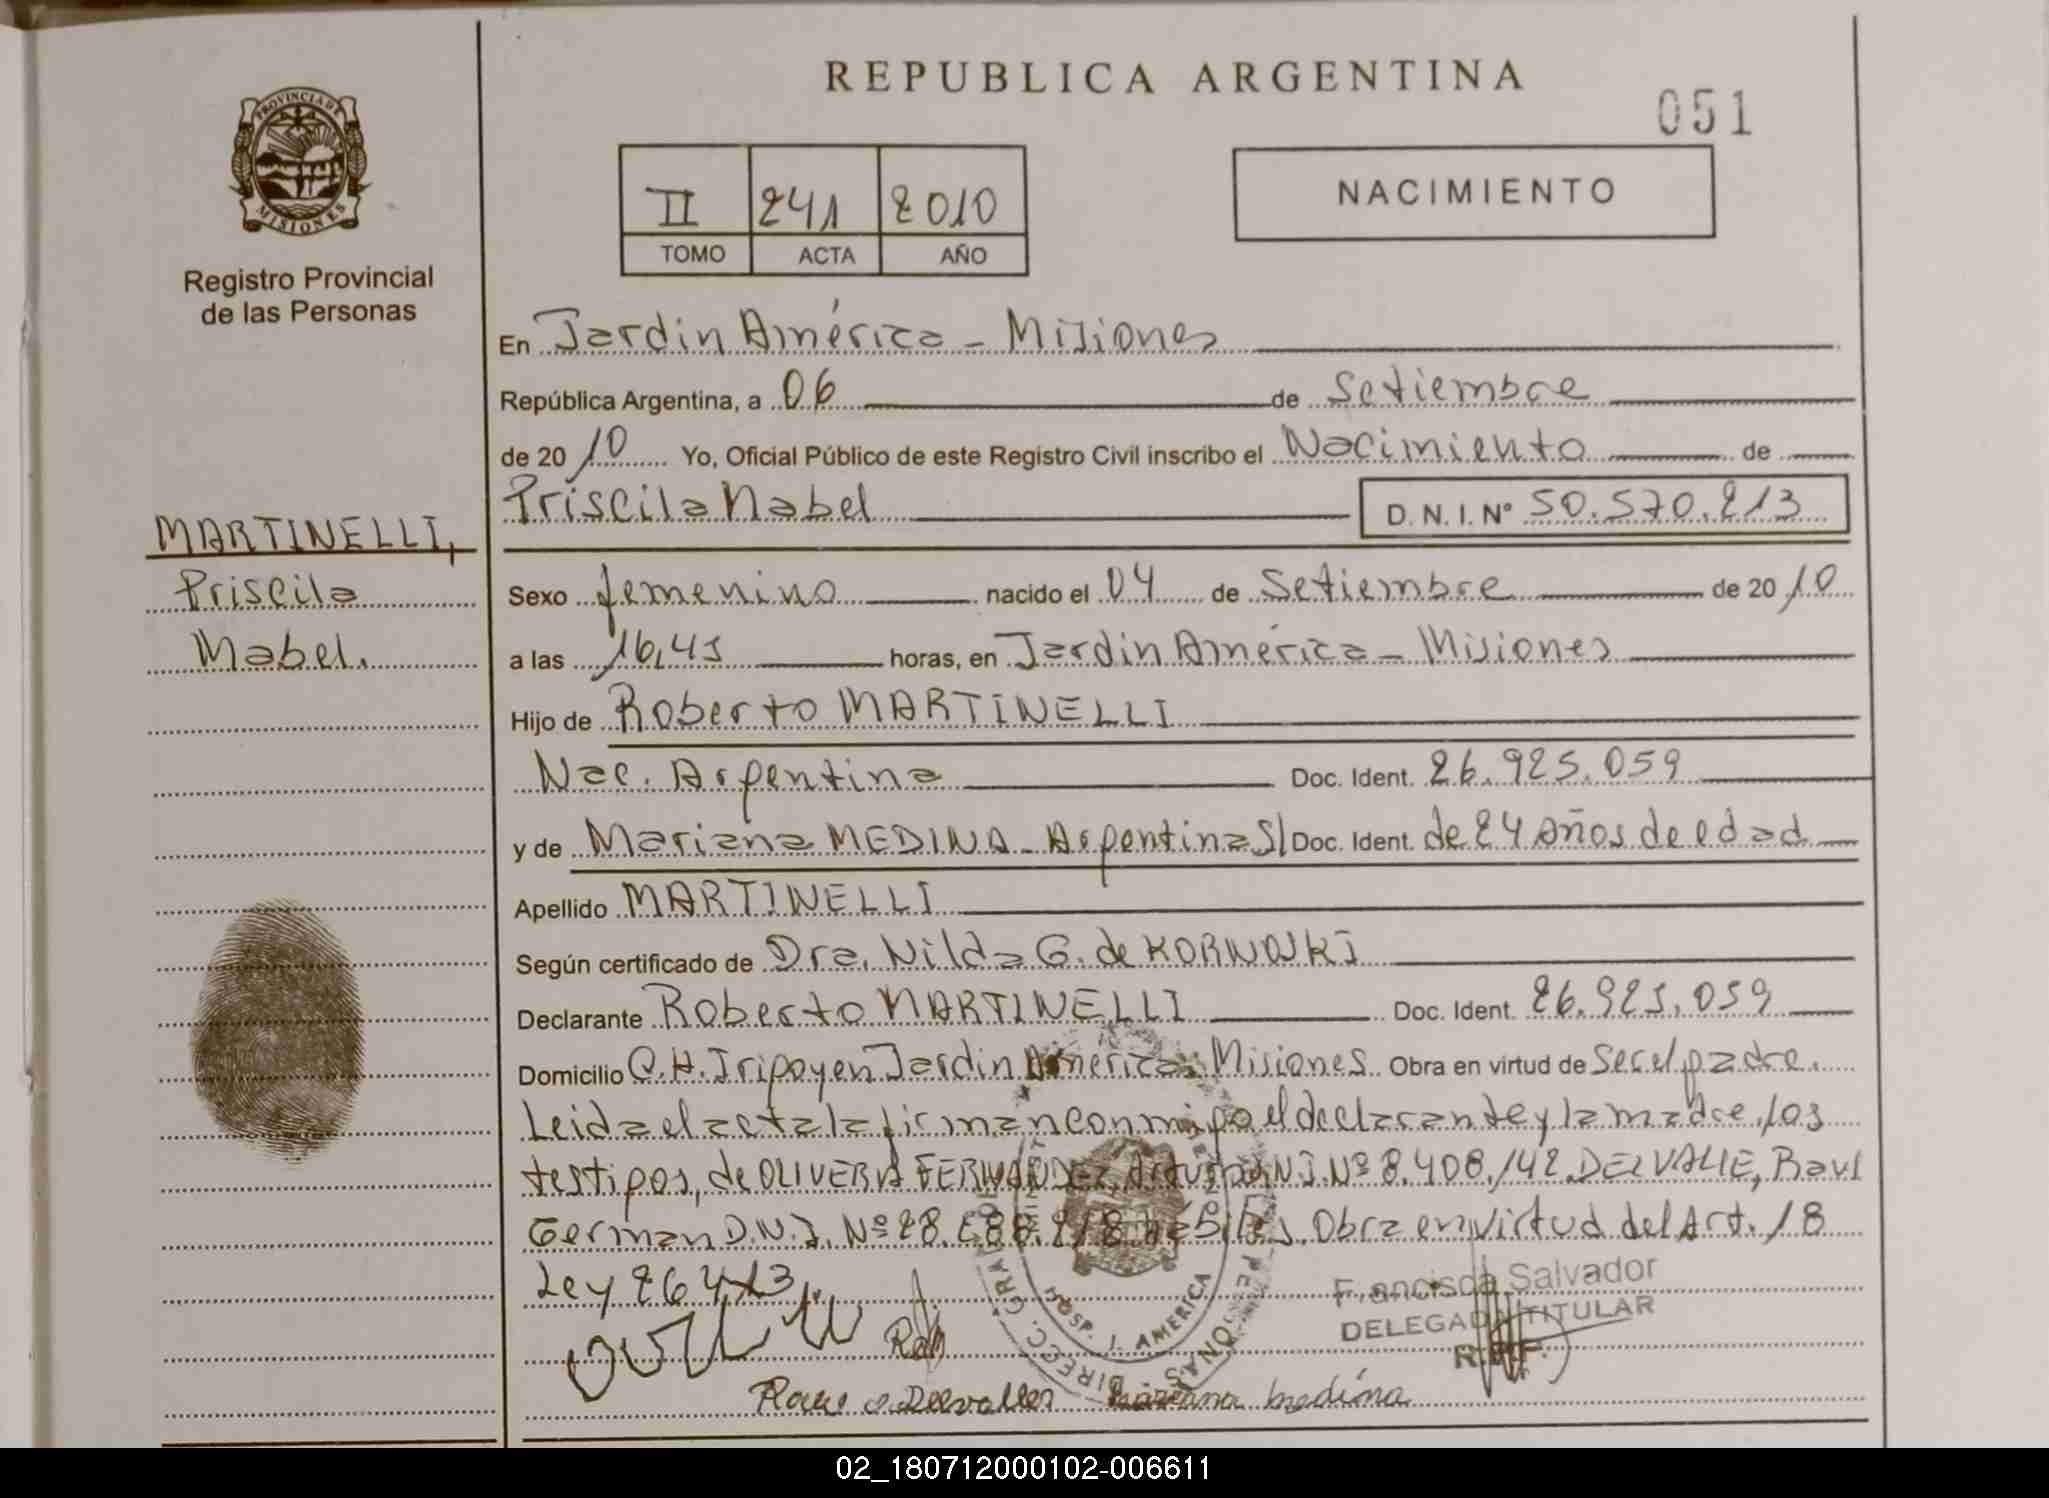 REPUBLICA ARGENTINA
051
PROVINCIA DE
MISIONES
Registro Provincial
de las Personas
II 241 2010
TOMO ACTA AÑO
NACIMIENTO
En Jardin América - Misiones
República Argentina, a 06 de Setiembre
de 20 10 Yo, Oficial Público de este Registro Civil inscribo el Nacimiento de
Priscila Mabel D. N. I. N° 50.570.213
MARTINELLI,
Priscila
Mabel.
Sexo femenino nacido el 04 de Setiembre de 20 10
a las 16,45 horas, en Jardin América - Misiones
Hijo de Roberto MARTINELLI
Nac. Argentina Doc. Ident. 26.925.059
y de Mariana MEDINA - Argentina S/ Doc. Ident. de 24 Años de edad
Apellido MARTINELLI
Según certificado de Dra. Nilda G. de KORNOSKI
Declarante Roberto MARTINELLI Doc. Ident. 26.925.059
Domicilio C. H. Irigoyen Jardin América Misiones Obra en virtud de Ser el padre.
Leida el acta la firman conmigo el declarante y la madre, los
testigos, de OLIVERA FERNANDEZ, Arturo D.N.I. Nº 8.408.142 DELVALLE, Raul
German D.N.I. Nº 28. hábiles. Obra en virtud del Art. 18
Ley 26413.
DIRECC. GRAL.
HOSP. J. AMERICA
PERSONAS
Francisca Salvador
DELEGADA TITULAR
R.P.P.
Raul Delvalle Mariana Medina
02_180712000102-006611